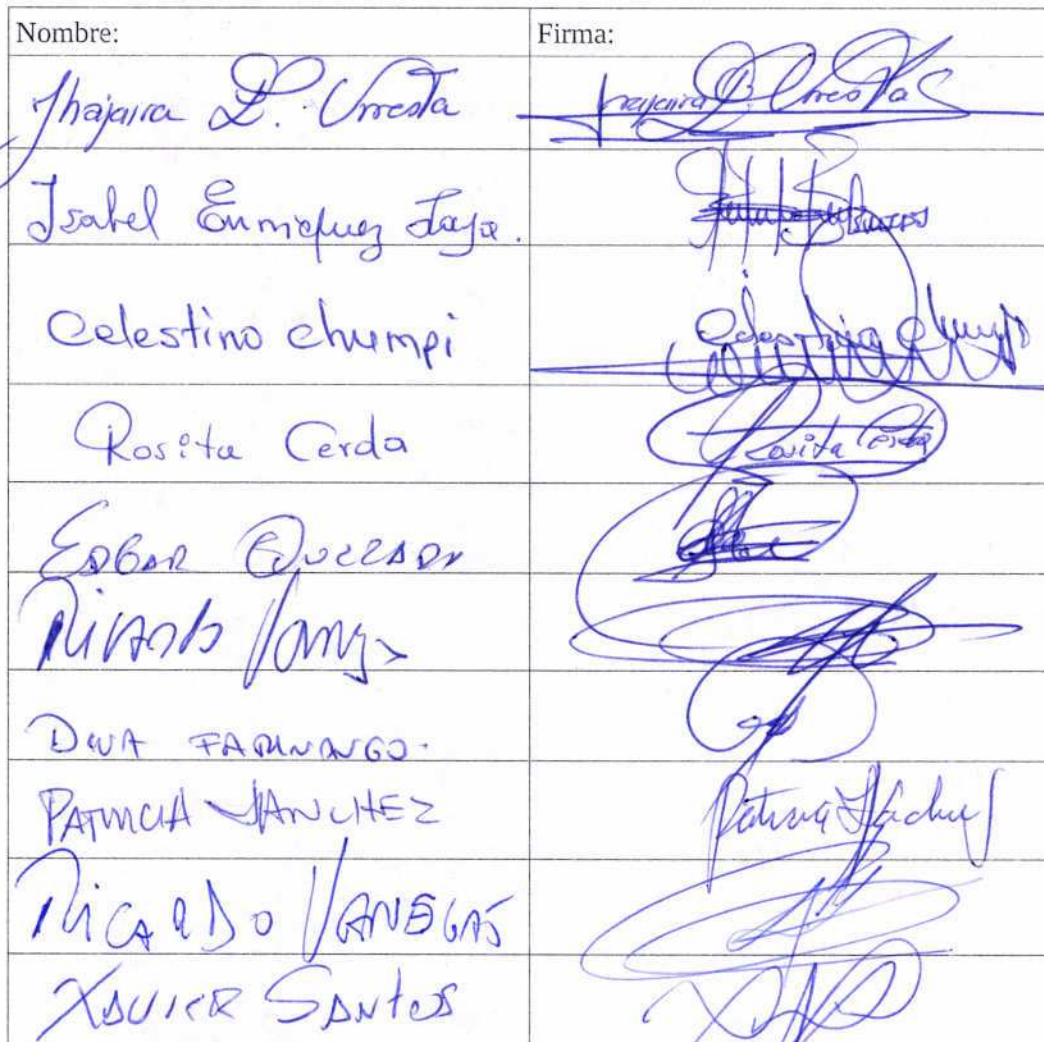 Nombre: Firma:
Jhajaira L. Urresta Jhajaira L. Urresta
Isabel Enriquez Jaya.
Celestino chumpi Celestino chumpi
Rosita Cerda Rosita Cerda
EDGAR QUEZADA
Ricardo
DINA FARINANGO.
PATRICIA SANCHEZ Patricia Sánchez
RICARDO VANEGAS
XAVIER SANTOS